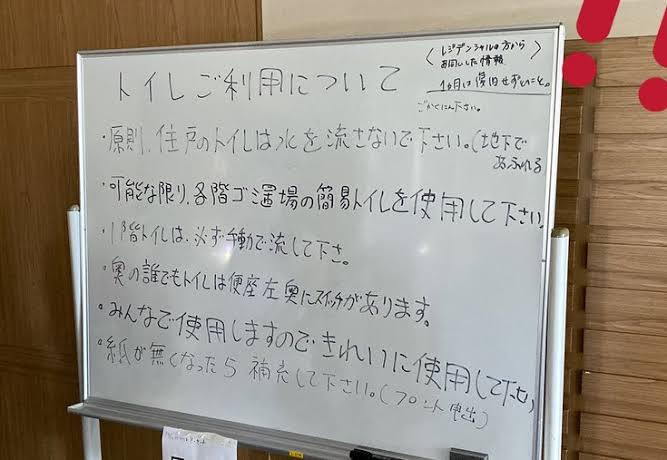 トイレご利用について
〈レジデンシャルの方から
お伺いした情報〉
1ヶ月は復旧せずとのこと。
ごかくにん下さい。
・原則、住戸のトイレは水を流さないで下さい。(地下で
あふれる
・可能な限り、各階ゴミ置場の簡易トイレを使用して下さい。
・1階トイレは、必ず手動で流して下さ。
・奥の誰でもトイレは便座左奥にスイッチがあります。
・みんなで使用しますのできれいに使用して下さい
・紙が無くなったら補充して下さい。(フロント申出)